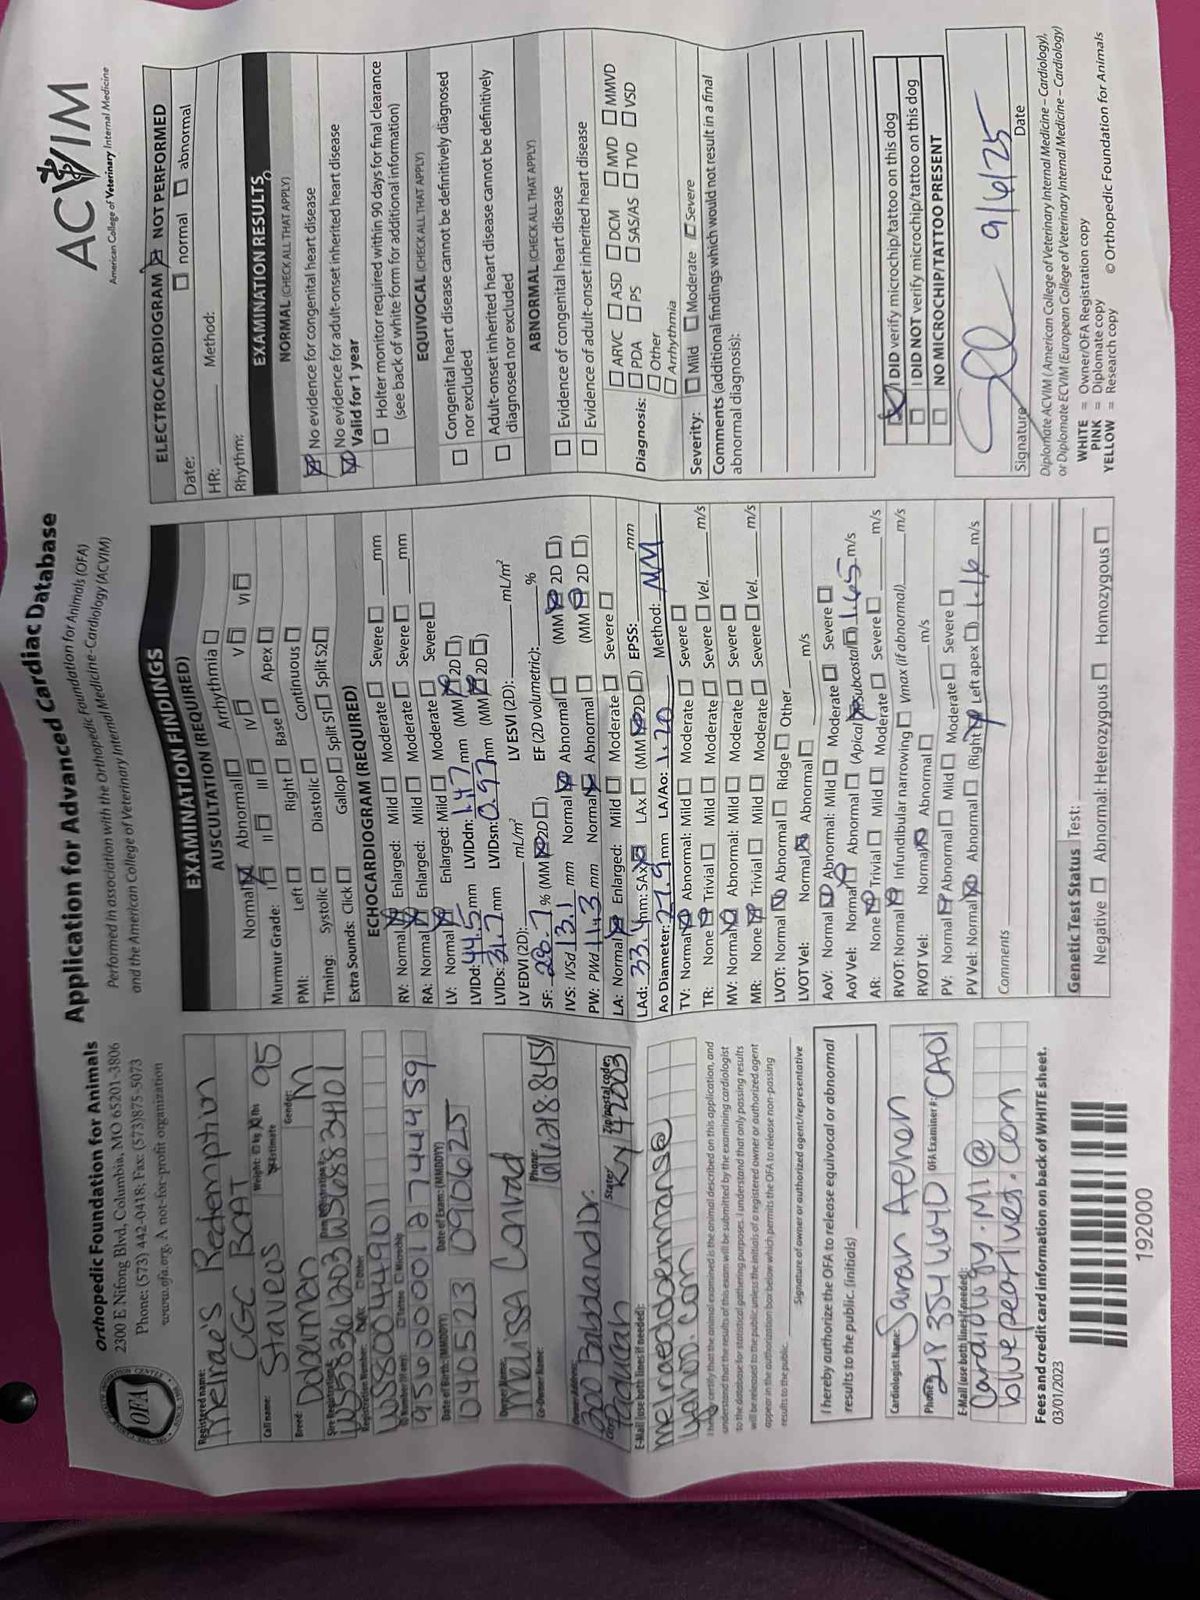 Orthopedic Foundation for Animals
2300 E Nifong Blvd, Columbia, MO 65201-3806
Phone: (573) 442-0418; Fax: (573)875-5073
www.ofa.org. A not-for-profit organization
OFA
Application for Advanced Cardiac Database
Performed in association with the Orthopedic Foundation for Animals (OFA)
and the American College of Veterinary Internal Medicine-Cardiology (ACVIM)
ACVIM
American College of Veterinary Internal Medicine
Registered name:
Melrae's Redemption
CGC BCAT
Call name: Staveos Weight: kg lbs 95
Estimate
Breed: Doberman Gender: M
Sire Registration: Dam Registration:
WS58361203 WS68834101
Registration Number: Other:
WS80044901
ID Number (if any): Tattoo Microchip
956000012744459
Date of Birth: (MMDDYY) Date of Exam: (MMDDYY)
040523 090625
Owner Name:
Melissa Conrad
Co-Owner Name: Phone:
Owner Address:
200 Balsband Dr.
City State: Zip/postal code:
Paducah Ky 42003
E-Mail (use both lines if needed):
melraedobermans@
yahoo.com
I hereby certify that the animal examined is the animal described on this application, and
understand that the results of this exam will be submitted by the examining cardiologist
to the database for statistical gathering purposes. I understand that only passing results
will be released to the public unless the initials of a registered owner or authorized agent
appear in the authorization box below which permits the OFA to release non-passing
results to the public.
Signature of owner or authorized agent/representative
I hereby authorize the OFA to release equivocal or abnormal
results to the public. (initials)
Cardiologist Name: Sarah Achen
Phone: 248 354 6640 OFA Examiner #: CA01
E-Mail (use both lines if needed):
Cardiology.MI@
bluepearlvet.com
Fees and credit card information on back of WHITE sheet.
03/01/2023
192000
EXAMINATION FINDINGS
AUSCULTATION (REQUIRED)
Normal Abnormal Arrhythmia
Murmur Grade: I II III IV V VI
PMI: Left Right Base Apex
Timing: Systolic Diastolic Continuous
Extra Sounds: Click Gallop Split S1 Split S2
ECHOCARDIOGRAM (REQUIRED)
RV: Normal Enlarged: Mild Moderate Severe mm
RA: Normal Enlarged: Mild Moderate Severe mm
LV: Normal Enlarged: Mild Moderate Severe
LVIDd: 44.5 mm LVIDdn: 1.47 mm (MM 2D)
LVIDs: 31.7 mm LVIDsn: 0.97 mm (MM 2D)
LV EDVI (2D): mL/m² LV ESVI (2D): mL/m²
SF: 28.7 % (MM 2D) EF (2D volumetric): %
IVS: IVSd 13.1 mm Normal Abnormal (MM 2D)
PW: PWd 11.3 mm Normal Abnormal (MM 2D)
LA: Normal Enlarged: Mild Moderate Severe
LAd: 33.4 mm: SAx LAx (MM 2D) EPSS: mm
Ao Diameter: 27.9 mm LA/Ao: 1.20 Method: MM
TV: Normal Abnormal: Mild Moderate Severe
TR: None Trivial Mild Moderate Severe Vel. m/s
MV: Normal Abnormal: Mild Moderate Severe
MR: None Trivial Mild Moderate Severe Vel. m/s
LVOT: Normal Abnormal Ridge Other
LVOT Vel: Normal Abnormal m/s
AoV: Normal Abnormal: Mild Moderate Severe
AoV Vel: Normal Abnormal (Apical Subcostal) 1.65 m/s
AR: None Trivial Mild Moderate Severe m/s
RVOT: Normal Infundibular narrowing Vmax (if abnormal) m/s
RVOT Vel: Normal Abnormal m/s
PV: Normal Abnormal Mild Moderate Severe
PV Vel: Normal Abnormal (Right Left apex) 1.16 m/s
Comments
Genetic Test Status Test:
Negative Abnormal: Heterozygous Homozygous
ELECTROCARDIOGRAM NOT PERFORMED
Date: normal abnormal
HR: Method:
Rhythm:
EXAMINATION RESULTS
NORMAL (CHECK ALL THAT APPLY)
No evidence for congenital heart disease
No evidence for adult-onset inherited heart disease
Valid for 1 year
Holter monitor required within 90 days for final clearance
(see back of white form for additional information)
EQUIVOCAL (CHECK ALL THAT APPLY)
Congenital heart disease cannot be definitively diagnosed
nor excluded
Adult-onset inherited heart disease cannot be definitively
diagnosed nor excluded
ABNORMAL (CHECK ALL THAT APPLY)
Evidence of congenital heart disease
Evidence of adult-onset inherited heart disease
Diagnosis: ARVC ASD DCM MVD MMVD
PDA PS SAS/AS TVD VSD
Other
Arrhythmia
Severity: Mild Moderate Severe
Comments (additional findings which would not result in a final
abnormal diagnosis):
I DID verify microchip/tattoo on this dog
I DID NOT verify microchip/tattoo on this dog
NO MICROCHIP/TATTOO PRESENT
9/6/25
Signature Date
Diplomate ACVIM (American College of Veterinary Internal Medicine – Cardiology),
or Diplomate ECVIM (European College of Veterinary Internal Medicine – Cardiology)
WHITE = Owner/OFA Registration copy
PINK = Diplomate copy
YELLOW = Research copy
© Orthopedic Foundation for Animals